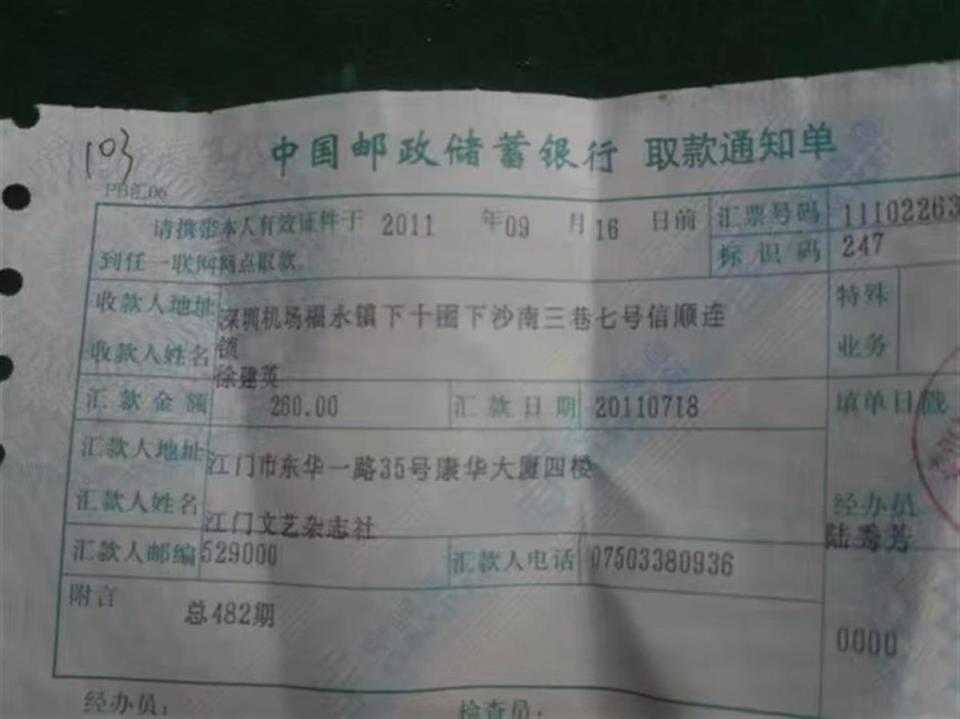 103
中国邮政储蓄银行 取款通知单
PB汇06
请携带本人有效证件于 2011 年 09 月 16 日前 汇票号码 11102263
到任一联网网点取款。 标识码 247
收款人地址 深圳机场福永镇下十围下沙南三巷七号信顺连 特殊
锁
收款人姓名 徐建英 业务
汇款金额 260.00 汇款日期 20110718 填单日戳
汇款人地址 江门市东华一路35号康华大厦四楼
汇款人姓名 江门文艺杂志社 经办员
陆秀芳
汇款人邮编 529000 汇款人电话 07503380936
附言 总482期
0000
经办员: 检查员: